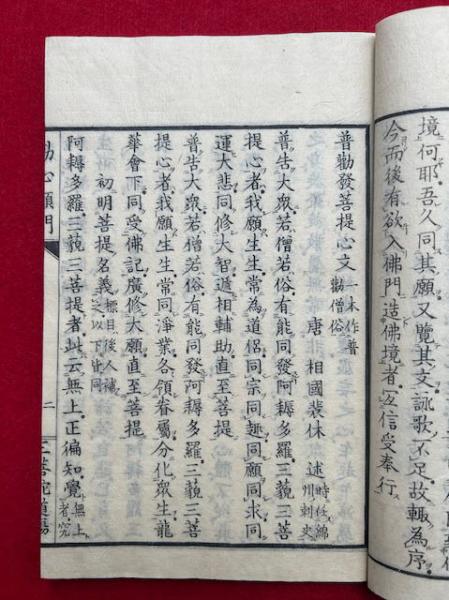 境何耶吾久同其願又覽其文詠歌不足故輙爲序
今而後有欲入佛門造佛境者宜信受奉行
普勸發菩提心文 一本作普勸僧俗
唐 相國裴休 述 時任綿州刺史
普告大眾若僧若俗有能同發阿耨多羅三藐三菩
提心者我願生生常為道侶同宗同趣同願同求同
運大悲同修大智遞相輔助直至菩提
普告大眾若僧若俗有能同發阿耨多羅三藐三菩
提心者我願生生常同淨業各領眷屬分化眾生龍
華會下同受佛記廣修大願直至菩提
初明菩提名義 標目後人補之以下皆同
阿耨多羅三藐三菩提者此云無上正偏知覺 無上者究
心願門 二 道場